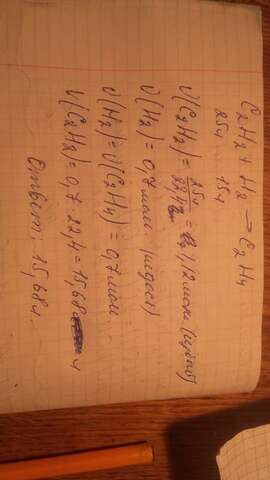 C₂H₂ + H₂ → C₂H₄
25л 15л
ν(C₂H₂) = 25л/22,4 = 1,12 моль (избыт)
ν(H₂) = 0,7 моль (недост)
ν(H₂) = ν(C₂H₄) = 0,7 моль.
V(C₂H₂) = 0,7 · 22,4 = 15,68 л
Ответ: 15,68 л.